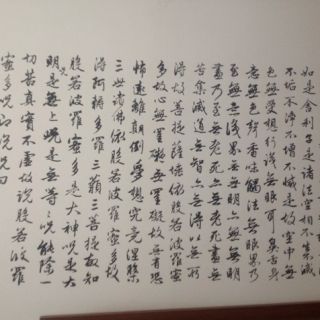 如是舍利子是諸法空相不生不滅
不垢不淨不增不減是故空中無
色無受想行識無眼耳鼻舌身
意無色聲香味觸法無眼界乃
至無意識界無無明亦無無明
盡乃至無老死亦無老死盡無
苦集滅道無智亦無得以無所
得故菩提薩埵依般若波羅蜜
多故心無罣礙無罣礙故無有恐
怖遠離顛倒夢想究竟涅槃
三世諸佛依般若波羅蜜多故
得阿耨多羅三藐三菩提故知
般若波羅蜜多是大神咒是大
明咒是無上咒是無等々咒能除一
切苦真實不虛故說般若波羅
蜜多咒即說咒曰